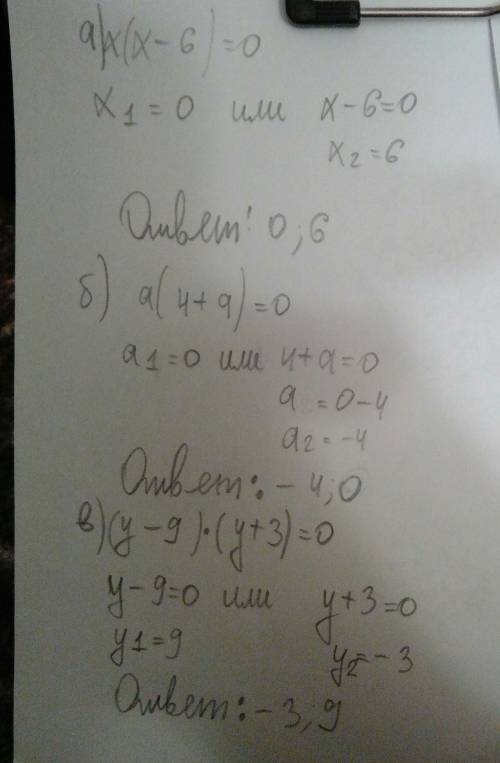 а) x(x-6)=0
x1=0 или x-6=0
x2=6
Ответ: 0;6
б) a(4+a)=0
a1=0 или 4+a=0
a=0-4
a2=-4
Ответ: -4;0
в) (y-9)·(y+3)=0
y-9=0 или y+3=0
y1=9 y2=-3
Ответ: -3;9